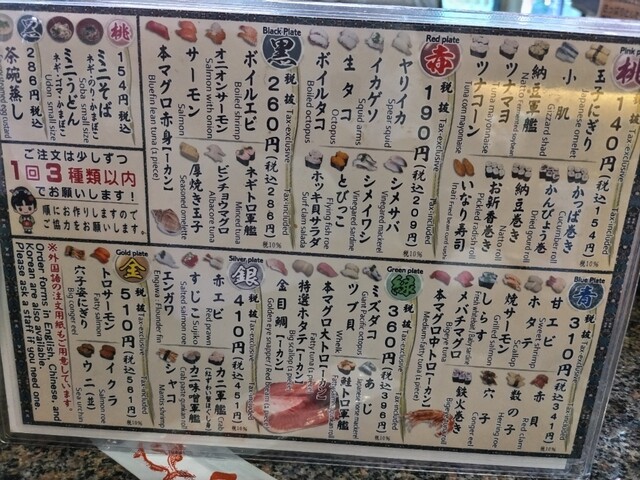 Pink plate
桃
140円(税込154円)
玉子にぎり
Japanese omelet
小肌
Gizzard shad
納豆軍艦
ツナマヨ
Tuna mayonnaise
ツナコーン
Tuna corn mayonnaise
かっぱ巻き
Cucumber roll
かんぴょう巻
Dried gourd roll
納豆巻き
Natto roll
お新香巻き
Pickled radish roll
いなり寿司
税10%
Red plate
赤
税抜
Tax-exclusive
190円(税込209円)
Tax-included
ヤリイカ
Spear squid
イカゲソ
Squid arms
生タコ
Raw octopus
ボイルタコ
Boiled octopus
シメサバ
Vinegared mackerel
シメイワシ
Vinegared sardine
とびっこ
Flying fish roe
ホッキ貝サラダ
Surf clam salad
税10%
Black Plate
黒
税抜
Tax-exclusive
260円(税込286円)
Tax-included
ボイルエビ
Boiled shrimp
オニオンサーモン
Salmon with onion
サーモン
Salmon
本マグロ赤身(一カン)
Bluefin lean tuna (1 piece)
ネギトロ軍艦
Minced tuna
ビンチョウマグロ
Albacore tuna
厚焼き玉子
Seasoned omelette
税10%
桃
154円税込
ミニそば
ネギ・のり・かまぼこ
Soba small size
ミニうどん
ネギ・ゴマ・かまぼこ
Udon small size
黒
286円税込
茶碗蒸し
ご注文は少しずつ
1回3種類以内
でお願いします!
順にお作りしますので
ご協力をお願いします。
Blue Plate
青
310円(税込341円)
甘エビ
Sweet shrimp
ホタテ
Scallop
焼サーモン
Grilled salmon
しらす
メバチマグロ
Bigeye tuna
本マグロ中トロ(一カン)
Medium-fatty tuna (1 piece)
赤貝
Red clam
数の子
Herring roe
穴子
Conger eel
鉄火巻き
税10%
Green plate
緑
税抜
Tax-exclusive
360円(税込396円)
Tax-included
ミズダコ
Giant Pacific octopus
ツブ貝
Whelk
本マグロ大トロ(一カン)
Fatty tuna (1 piece)
特選ホタテ(一カン)
Big scallop (1 piece)
金目鯛(一カン)
あじ
Japanese jack mackerel
鮭トロ軍艦
税10%
Silver plate
銀
税抜
Tax-exclusive
410円(税込451円)
Tax-included
赤エビ
Red prawn
すじこ
Salted salmon roe
エンガワ
Engawa / flounder fin
カニ軍艦
Crab
カニ味噌軍艦
シャコ
Mantis shrimp
税10%
Gold plate
金
税抜
Tax-exclusive
510円(税込561円)
Tax-included
トロサーモン
Fatty salmon
穴子一本にぎり
Big conger eel
イクラ
Salmon roe
ウニ
Sea urchin
税10%
※外国語の注文用紙もご用意しています。
Order forms in English, Chinese, and
Korean are also available.
Please ask a staff if you need one.